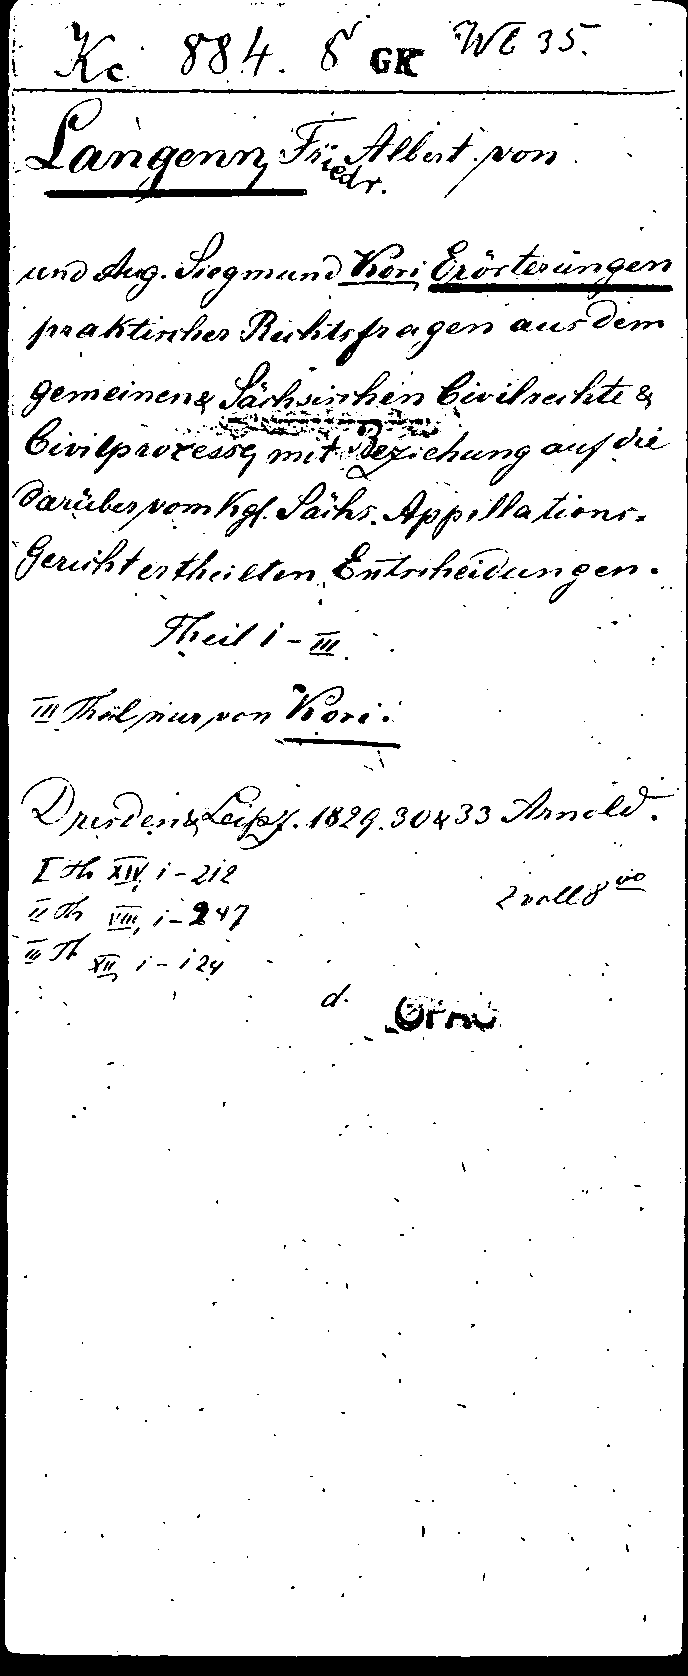 Kc 884. 8 GK WE 35.
Langenn, Friedr. Albert von
und Aug. Siegmund Kori Erörterungen
praktischer Rechtsfragen aus dem
gemeinen & Sächsischen Civilrechte &
Civilprozesse, mit Beziehung auf die
darüber vom Kgl. Sächs. Appellations-
Gericht ertheilten Entscheidungen.
Theil I - III.
III Theil nur von Kori.
Dresden & Leipz. 1829. 30 & 33 Arnold.
I Th XIV, 1 - 212
2 voll 8vo
II Th VIII, 1 - 247
III Th XII, 1 - 124
d.